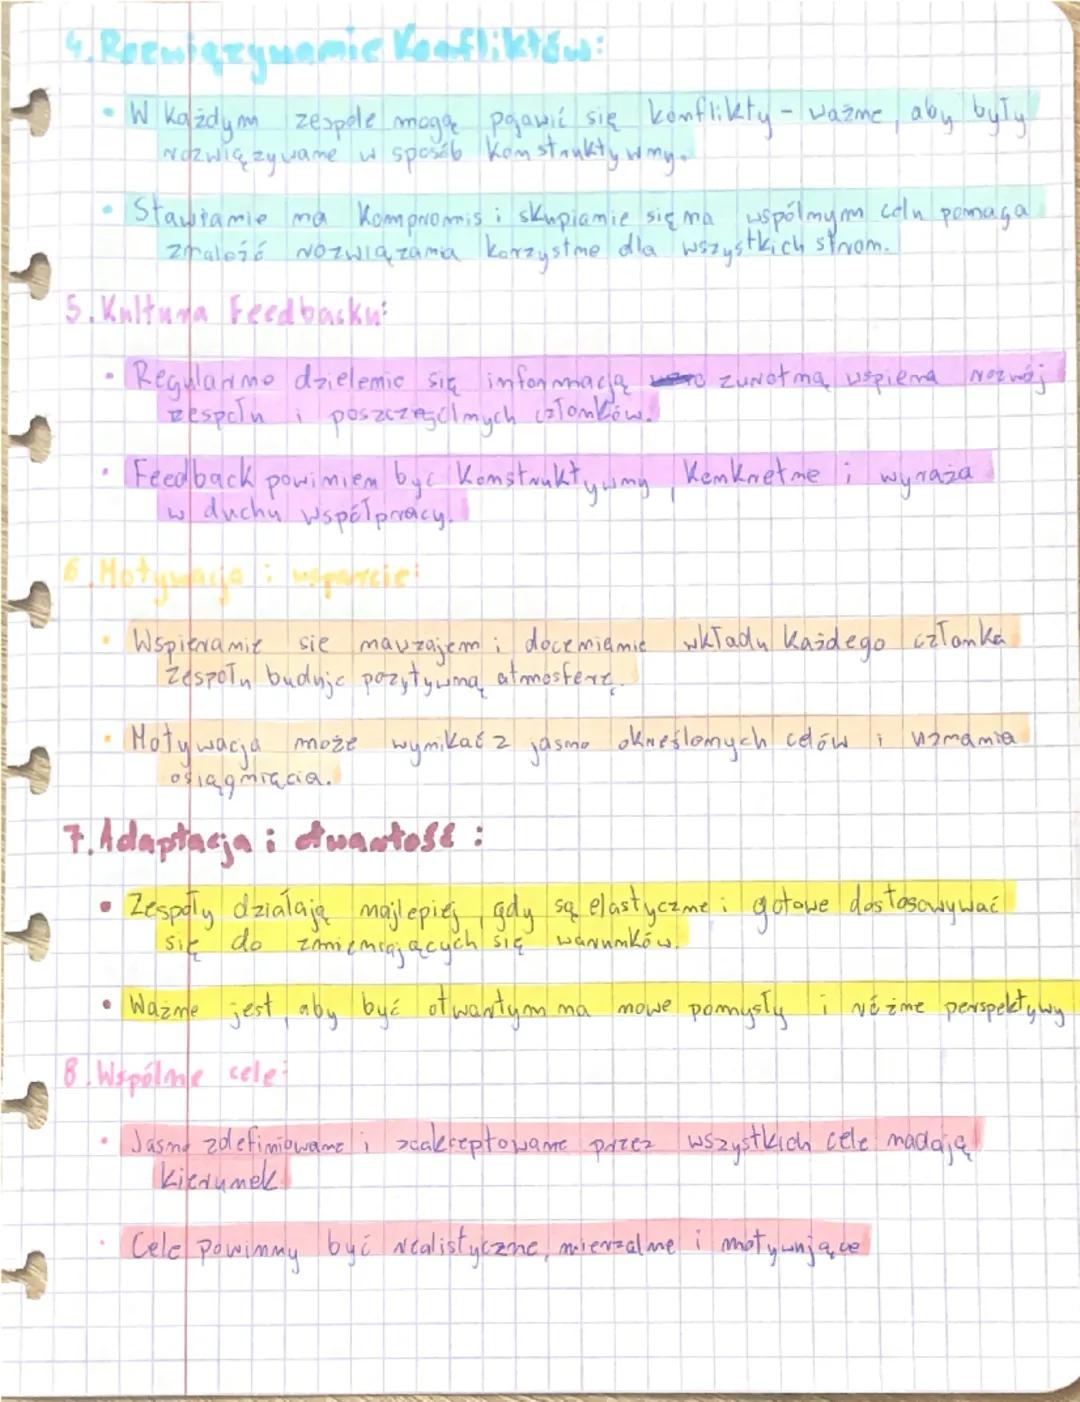 4. Rozwiązywanie Konfliktów:
• W każdym zespole mogą pojawić się konflikty - ważne, aby były
rozwiązywane w sposób konstruktywny.
• Stawianie na kompromis i skupianie się na wspólnym celu pomaga
znaleźć rozwiązania korzystne dla wszystkich stron.
5. Kultura Feedbacku:
• Regularne dzielenie się informacją zwrotną wspiera rozwój
zespołu i poszczególnych członków.
• Feedback powinien być konstruktywny, konkretne i wyraża
w duchu współpracy.
6. Motywacja i wsparcie:
• Wspieranie sie nawzajem i docenianie wkładu każdego członka
zespołu buduje pozytywną atmosferę.
• Motywacja może wynikać z jasno określonych celów i uznania
osiągnięcia.
7. Adaptacja i otwartość:
• Zespoły działają najlepiej, gdy są elastyczne i gotowe dostosowywać
się do zmieniających się warunków.
• Ważne jest, aby być otwartym na nowe pomysły i różne perspektywy
8. Wspólne cele:
• Jasno zdefiniowane i zaakceptowane przez wszystkich cele nadają
kierunek
• Cele powinny być realistyczne, mierzalne i motywujące